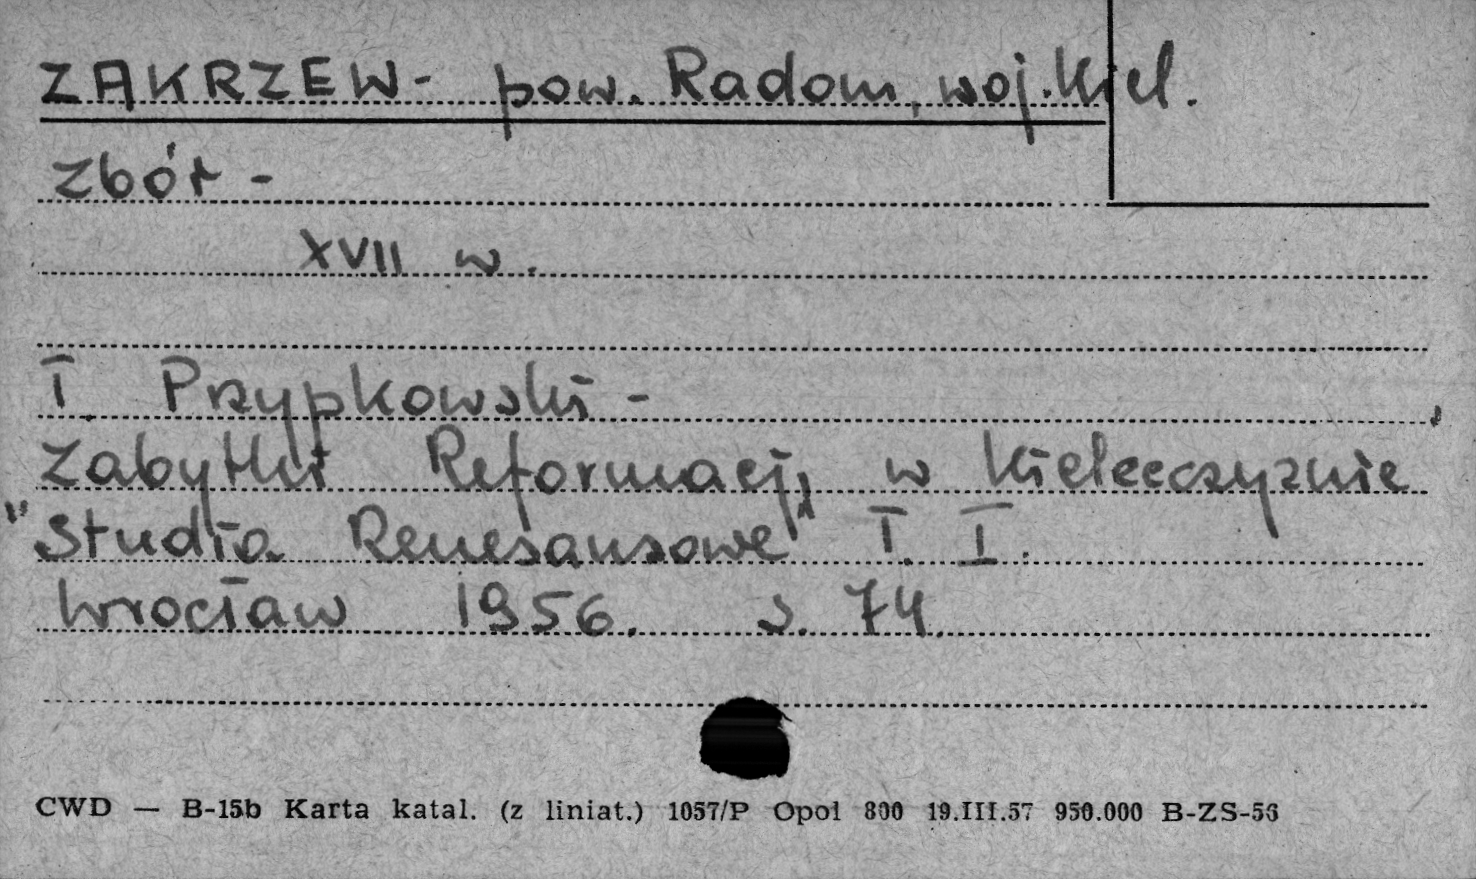 ZAKRZEW - pow. Radom, woj. Kiel.
Zbór -
XVII w.
T. Przypkowski -
Zabytki Reformacji w Kielecczyznie
"Studia Renesansowe" T. I.
Wrocław 1956. s. 74.
CWD — B-15b Karta katal. (z liniat.) 1057/P Opol 800 19.III.57 950.000 B-ZS-56